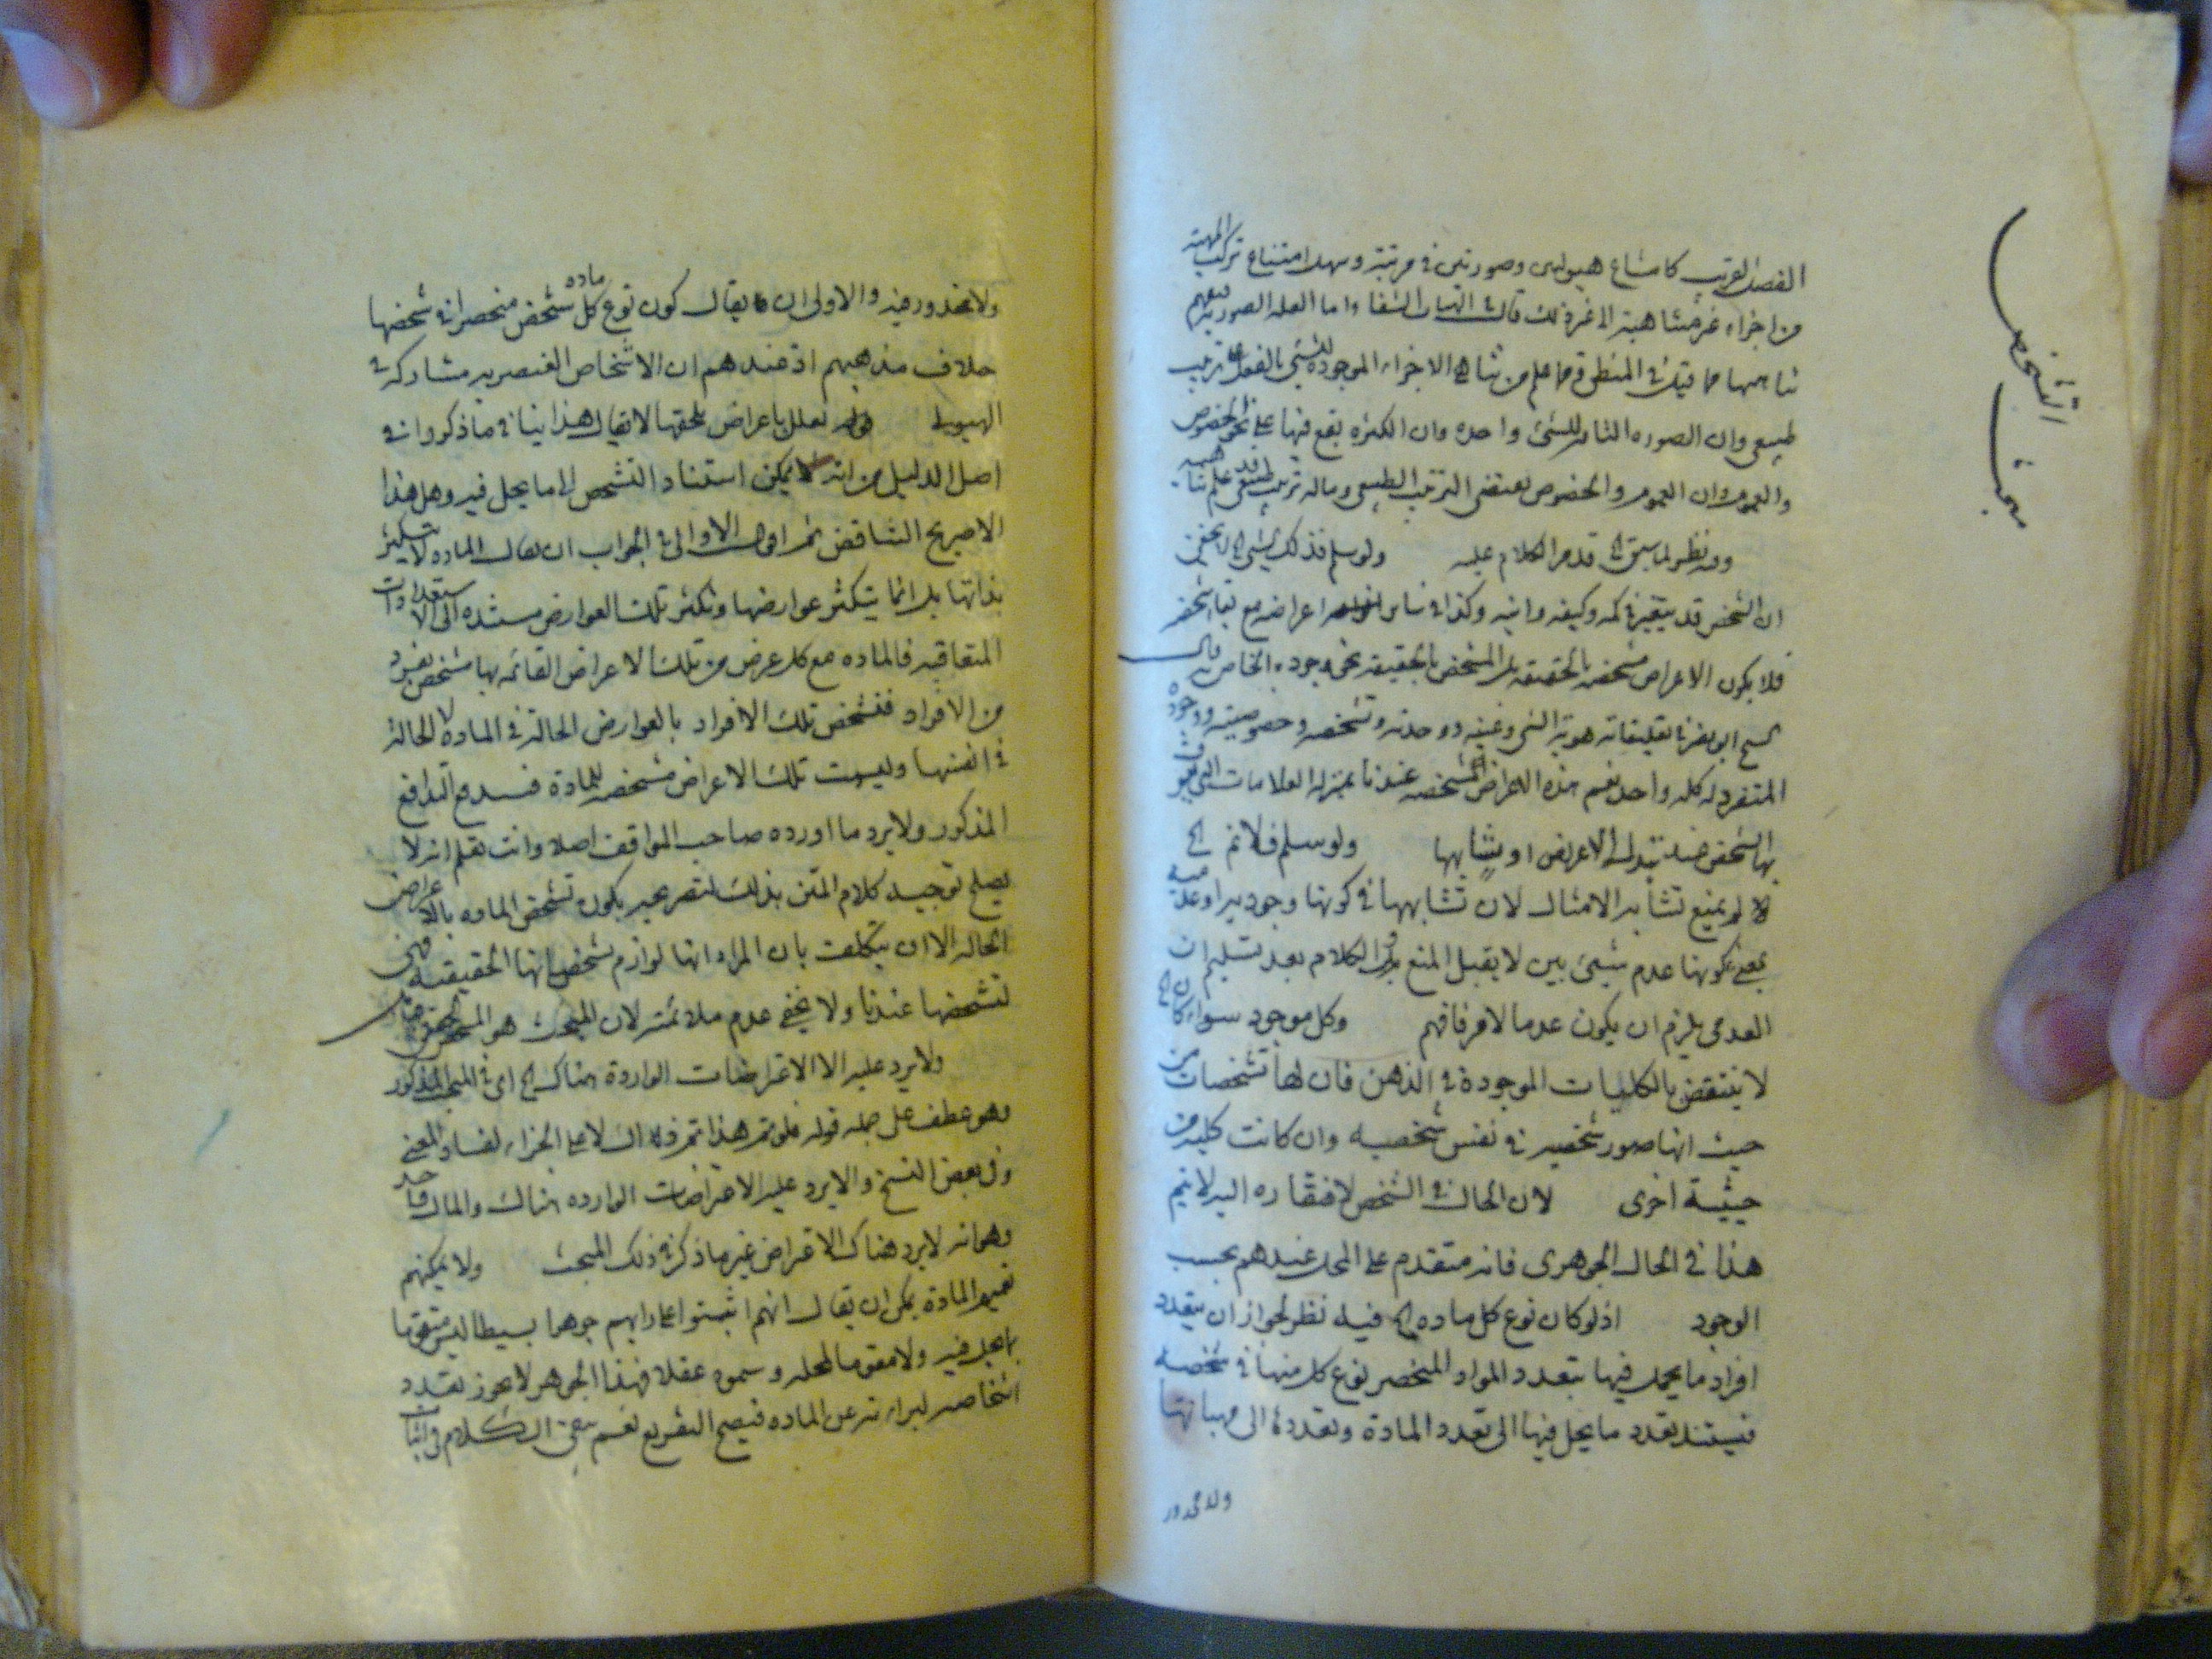 مبحث التشخص
الفصل القريب كامتناع هيولى وصورتين في مرتبة وبهذا امتناع تركب المهية
من اجزاء غير متناهية الى غير ذلك قال في الهيات الشفا واما العلة الصورية فيفهم
تناهيها مما قيل في المنطق ومما علم من تناهي الاجزاء الموجودة للشيء بالفعل على ترتيب
طبيعي وان الصورة التامة للشيء واحدة وان الكثرة يقع فيها على نحو الخصوص
والعموم وان العموم والخصوص يقتضي الترتيب الطبيعي وماله ترتيب طبيعي فقد علم تناهيه
وفيه نظر لما سبق الخ قد مر الكلام عليه ولو سلم فذلك الشيء الخ لا يخفى
ان الشخص قد يتغير في كمه وكيفه واينه وكذا في ساير اعراضه مع بقا شخصه
فلا يكون الاعراض مشخصة بالحقيقة بل المشخص بالحقيقة نحو وجوده الخاص قال
الشيخ ابو نصر في تعليقاته هوية الشيء وعينه ووحدته وتشخصه وخصوصيته ووجوده
المتفرد له كله واحد نعم هذه الاعراض المشخصة عندنا بمنزلة العلامات التي يعرف
بها الشخص عند تبدل الاعراض او تشابهها ولو سلم فلا تم الخ
لم يمنع تشابه الامثال لان تشابهها في كونها وجودية او عدمية
بمعنى كونها عدم شيء بين لا يقبل المنع والكلام بعد تسليم ان
العدمي يلزم ان يكون عدما لامر فافهم وكل موجود سواء كان الخ
لا ينتقض بالكليات الموجودة في الذهن فان لها تشخصات من
حيث انها صور شخصية في نفس شخصية وان كانت كلية من
حيثية اخرى لان الحال في الشخص لافتقاره اليه لا يتم
هذا في الحال الجوهري فانه متقدم على المحل عندهم بحسب
الوجود اذ لو كان نوع كل مادة الخ فيه نظر لجواز ان يتعدد
افراد ما يحل فيها بتعدد المواد المنحصر نوع كل منها في شخصه
فيستند تعدد ما يحل فيها الى تعدد المادة وتعددها الى مهياتها
ولا محذور
ولا محذور فيه والاولى ان يقال كون نوع كل مادة شخص منحصرا في شخصها
خلاف مذهبهم اذ عندهم ان الاشخاص العنصرية مشاركة في
الهيولى قوله تعلل باعراض تلحقها لا يقال هذا ينافي ما ذكروا في
اصل الدليل من انه لا يمكن استناد التشخص الى ما يحل فيه وهل هذا
الا صريح التناقض ثم اقول الاولى في الجواب ان يقال المادة لا تتكثر
بذاتها بل انما يتكثر عوارضها وتكثر تلك العوارض مستندة الى الاستعدادات
المتعاقبة فالمادة مع كل عرض من تلك الاعراض القائمة بها شخص بفرد
من الافراد فتشخص تلك الافراد بالعوارض الحالة في المادة لا الحالة
في انفسها وليست تلك الاعراض مشخصة للمادة فيندفع التدافع
المذكور ولا يرد ما اورده صاحب المواقف اصلا وانت تعلم انه لا
يصلح توجيه كلام المتن بذلك لتصريحه بكون تشخص المادة بالاعراض
الحالة الا ان يتكلف بان المراد انها لوازم تشخصاتها الحقيقية فهي
تشخصها عندنا ولا يخفى عدم ملائمته لان المبحث هو المشخص الحقيقي
ولا يرد عليه الا الاعتراضات الواردة هناك الخ اي في المبحث المذكور
وهو عطف على جملة قوله فلو تم هذا تم ذلك لا على الجزاء لفساد المعنى
وفي بعض النسخ والا يرد عليه الاعتراضات الواردة هناك والمال واحد
وهو انه لا يرد هناك الا اعتراض غير ما ذكر في ذلك المبحث ولا يمكنهم
تعميم المادة يمكن ان يقال انهم اثبتوا على رايهم جوهرا بسيطا ليس متقوما
بما يحل فيه ولا مقوما لمحله وسموه عقلا فهذا الجوهر لا يجوز تعدد
اشخاصه لبراءته عن المادة فيصح التفريع نعم بقي الكلام في اثبات